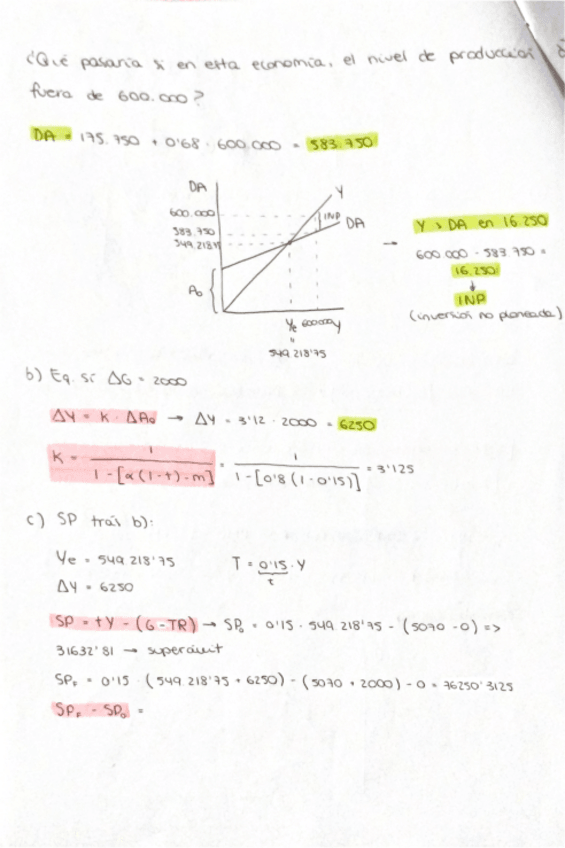 ¿Qué pasaría si en esta economía, el nivel de producción
fuera de 600.000?
DA = 175.750 + 0'68 · 600.000 = 583.750
DA
Y
600.000
INP
DA
583.750
549.218'75
A₀
Ye 600.000 Y
"
549 218'75
→ Y > DA en 16.250
600.000 - 583.750 =
16.250
↓
INP
(inversión no planeada)
b) Eq. si ΔG = 2000
ΔY = K · ΔA₀ → ΔY = 3'12 · 2000 = 6250
K = 1 / 1 - [α(1-t) - m] = 1 / 1 - [0'8 (1 - 0'15)] = 3'125
c) SP trás b):
Ye = 549.218'75 T = 0'15 · Y
t
ΔY = 6250
SP = tY - (G - TR) → SP₀ = 0'15 · 549.218'75 - (5070 - 0) =>
31632'81 → superávit
SP_F = 0'15 · (549.218'75 + 6250) - (5070 + 2000) - 0 = 76250'3125
SP_F - SP₀ =